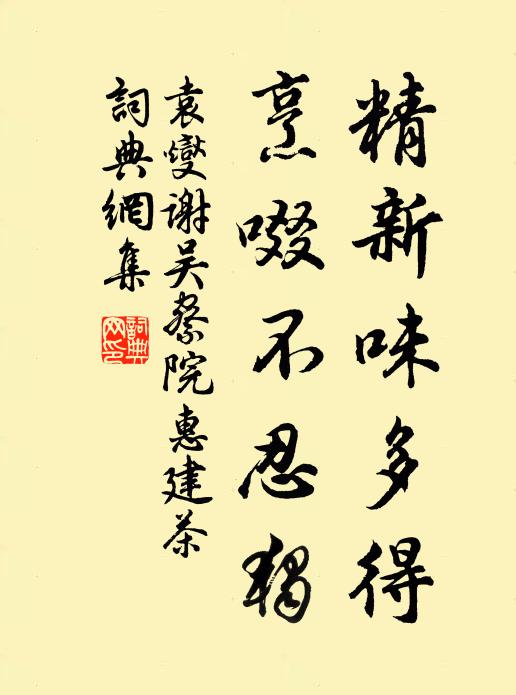 精新味多得
烹啜不忍獨
袁燮谢吴察院惠建茶
詞典網集
詞典网印